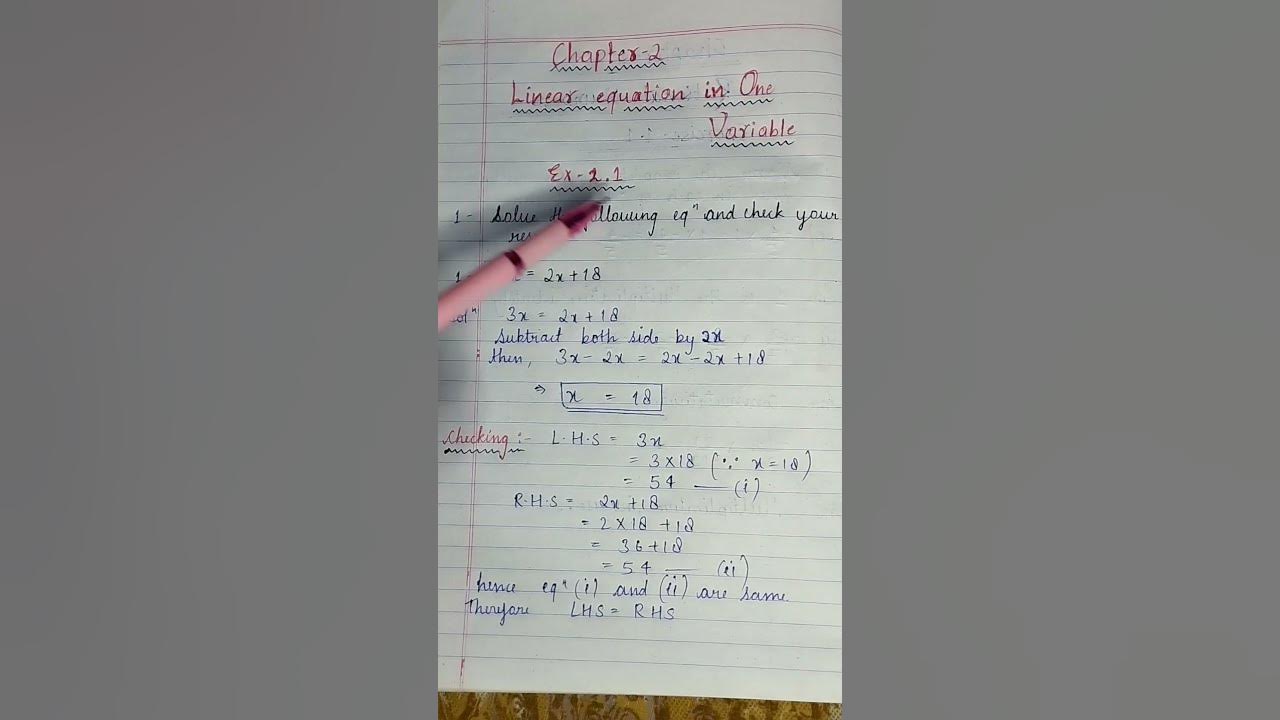 Chapter-2
Linear equation in One
Variable
Ex-2.1
1- Solve following eqⁿ and check your
1 = 2x+18
3x = 2x+18
subtract both side by 2x
then, 3x-2x = 2x-2x+18
⇒ x = 18
Checking :- L.H.S = 3x
= 3×18 (∵ x=18)
= 54 — (i)
R.H.S = 2x+18
= 2×18 +18
= 36+18
= 54 — (ii)
hence eqⁿ (i) and (ii) are same.
Therefore LHS = RHS